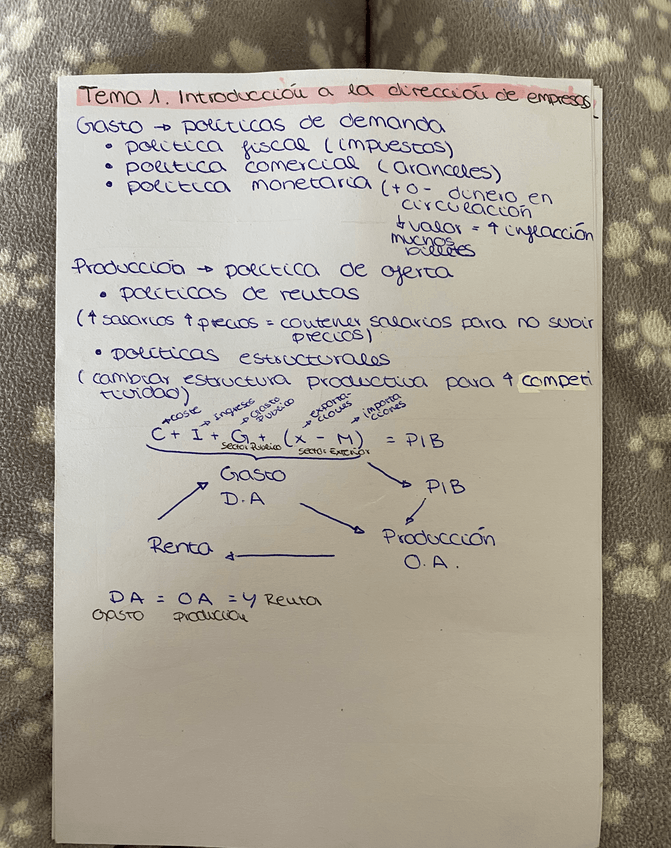 Tema 1. Introducción a la dirección de empresas.
Gasto → políticas de demanda
• política fiscal (impuestos)
• política comercial (aranceles)
• política monetaria (+ o - dinero en
circulación
↓ valor = ↑ inflacción
muchos
billetes
Producción → política de oferta
• políticas de rentas
(↑ salarios ↑ precios = contener salarios para no subir
precios)
• políticas estructurales
(cambiar estructura productiva para ↑ competi
tividad)
→ coste → Ingresos → Gasto Público → exportaciones → importaciones
C + I + G + (X - M) = PIB
Sector Público Sector Exterior
Gasto
D.A
PIB
Renta
Producción
O.A.
DA = OA = Y Renta
Gasto producción